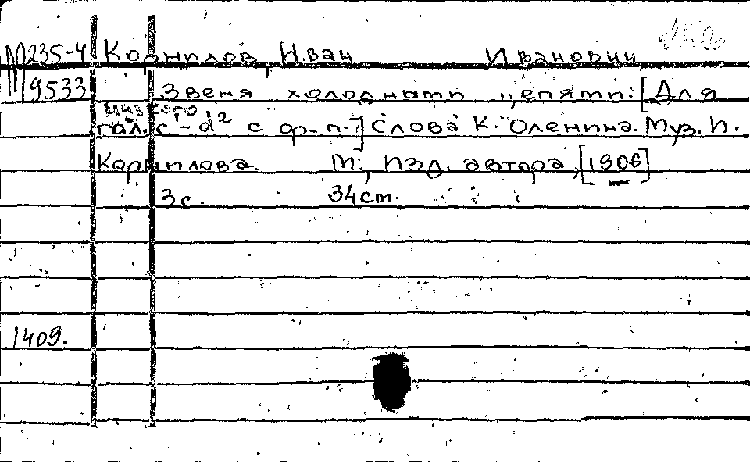 М235-4 Корнилов, Иван Иванович
19533 Звеня холодныти цепяти: [Для
низкого
гол. c-d² с ф-п.] Слова К. Оленина. Муз. И.
Корнилова. М., изд. автора, [1906]
3с. 34ст.
1409.